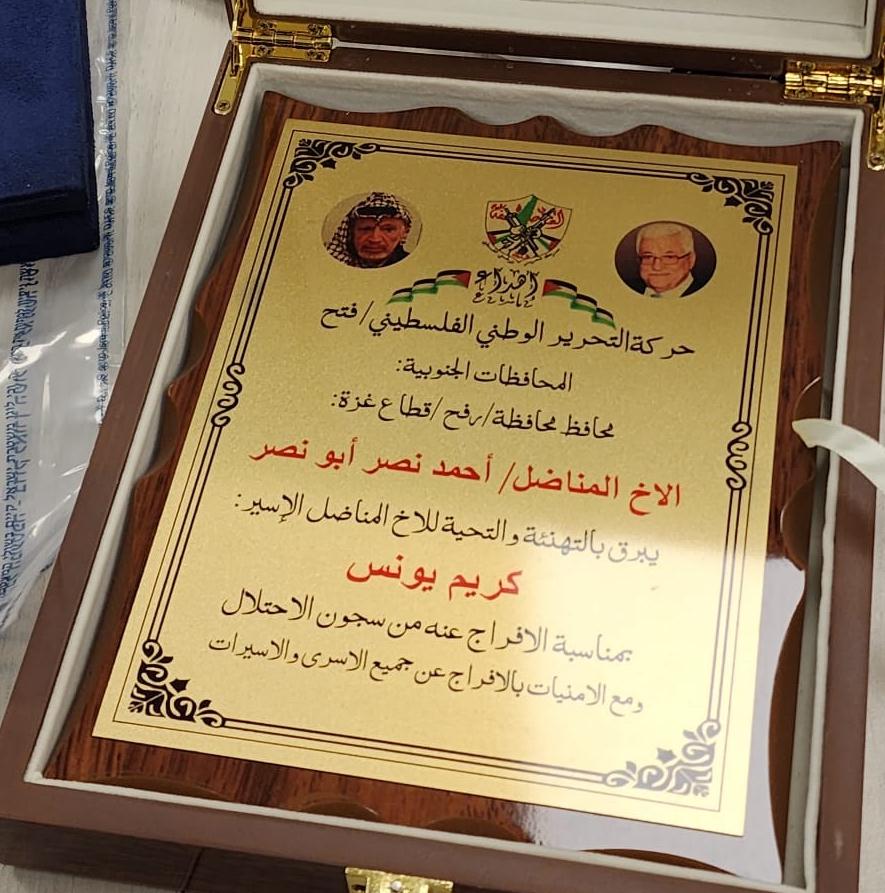 اهداء
حركة التحرير الوطني الفلسطيني/ فتح
المحافظات الجنوبية:
محافظ محافظة/رفح /قطاع غزة:
الاخ المناضل/ أحمد نصر أبو نصر
يبرق بالتهنئة والتحية للاخ المناضل الإسير:
كريم يونس
بمناسبة الافراج عنه من سجون الاحتلال
ومع الامنيات بالافراج عن جميع الاسرى والاسيرات